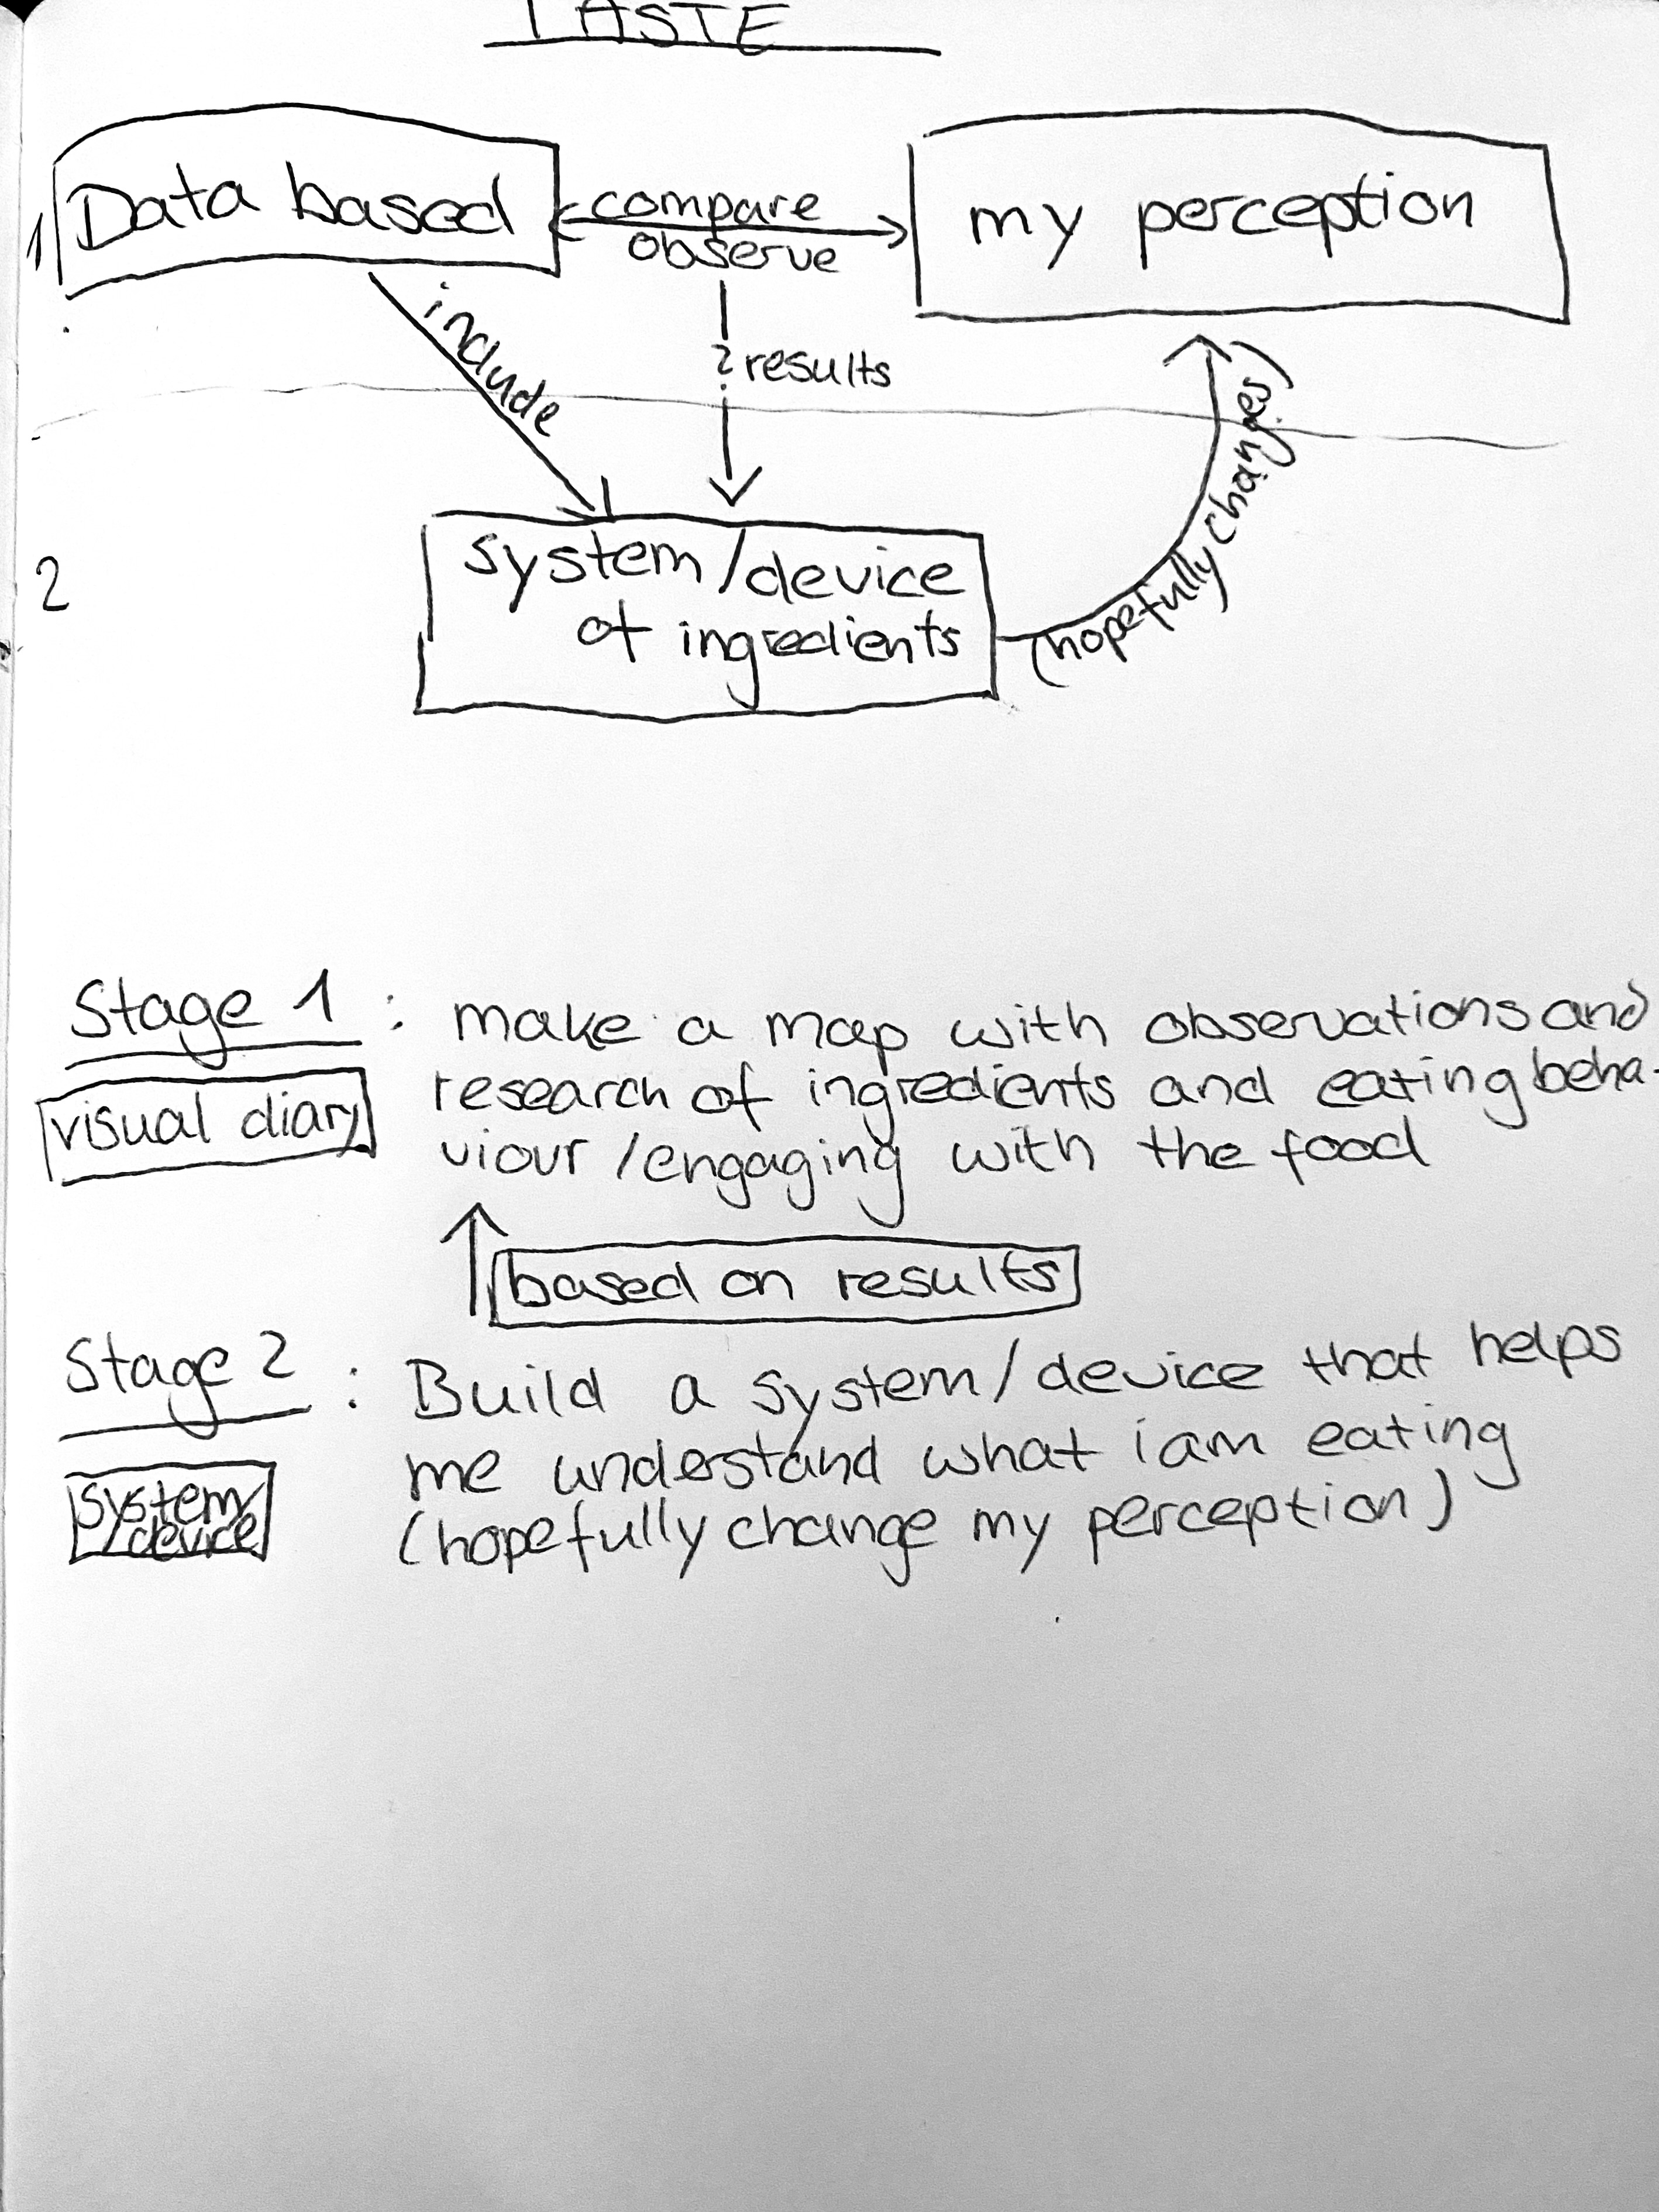 TASTE
1 Data based
compare
observe
my perception
include
? results
(hopefully changes)
2
system/device
of ingredients
Stage 1 : make a map with observations and
visual diary
research of ingredients and eating beha-
viour / engaging with the food
based on results
Stage 2 : Build a system/device that helps
me understand what i am eating
system/
/device
(hopefully change my perception)